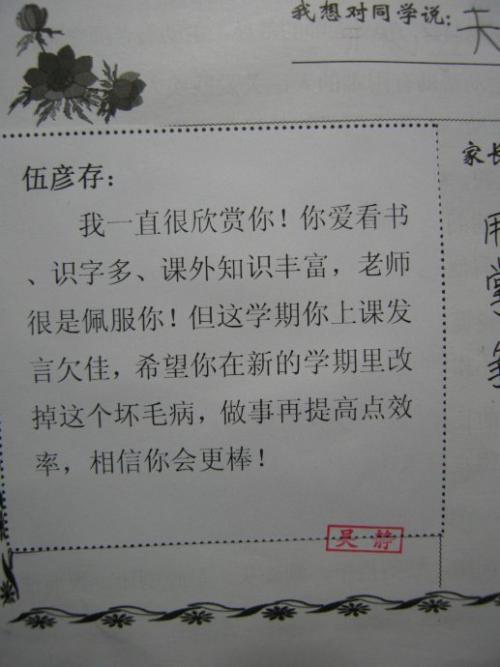 我想对同学说:
伍彦存:
我一直很欣赏你!你爱看书
、识字多、课外知识丰富,老师
很是佩服你!但这学期你上课发
言欠佳,希望你在新的学期里改
掉这个坏毛病,做事再提高点效
率,相信你会更棒!
吴 静
家长
用